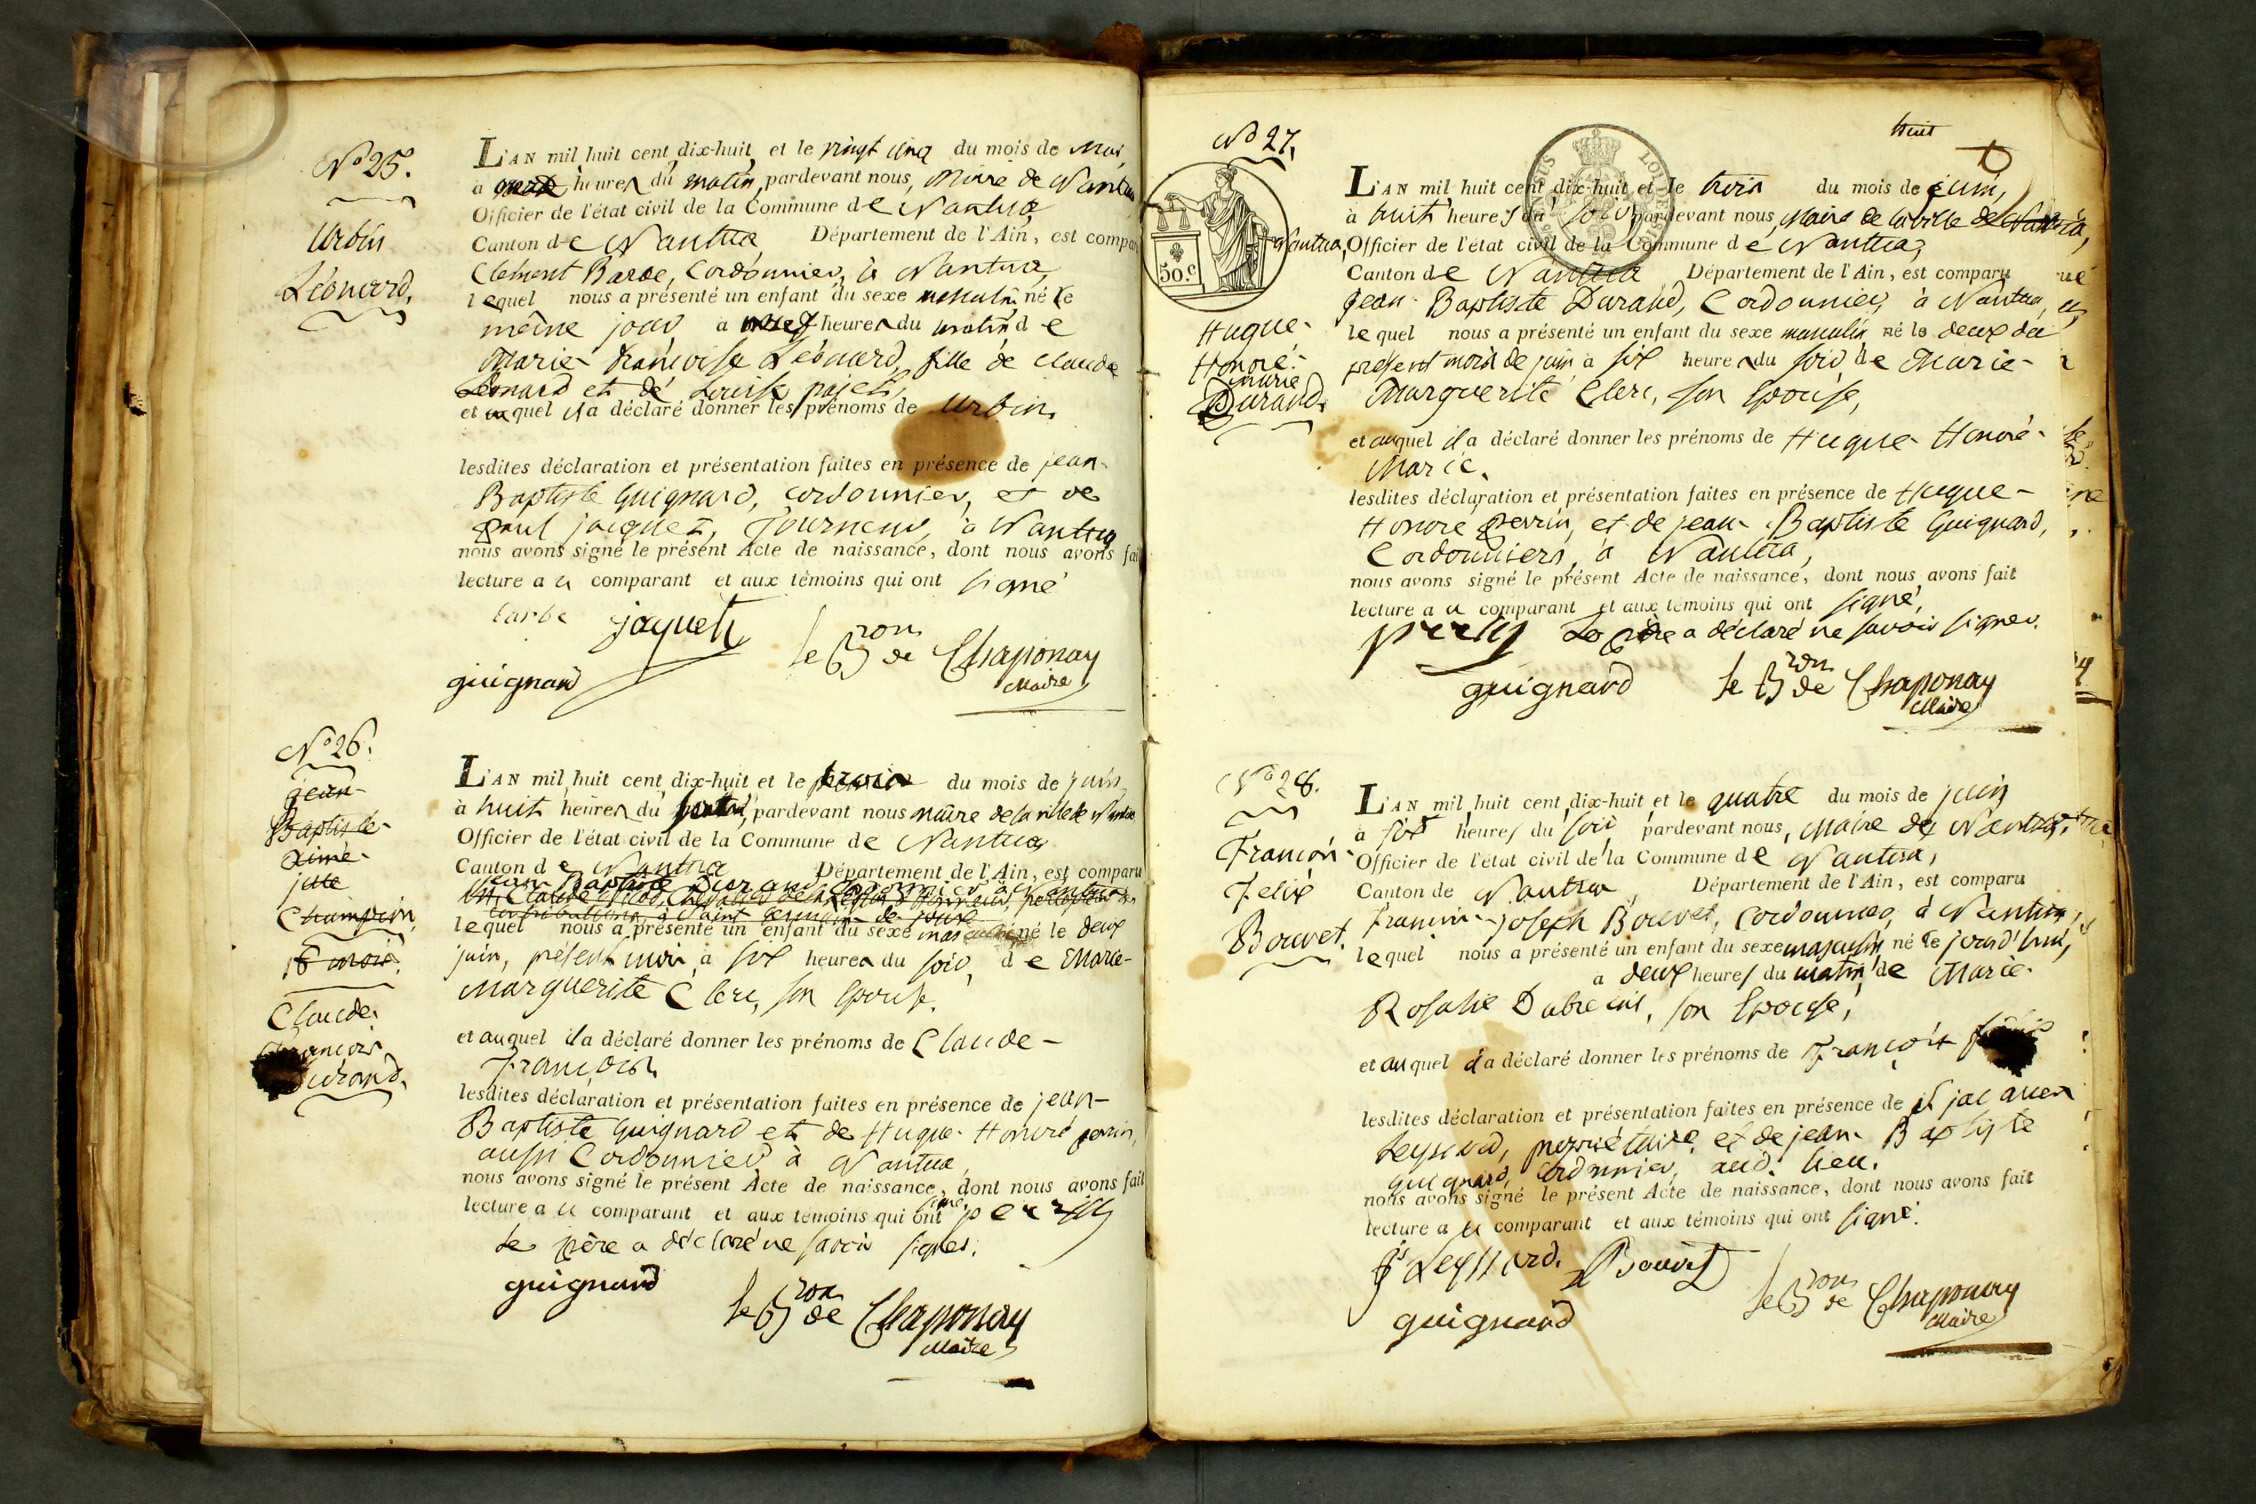 N.o 25.
Urbin
Léonard.
L'AN mil huit cent dix-huit et le vingt cinq du mois de Mai,
à heures du matin, pardevant nous, Maire de Nantua
Officier de l'état civil de la Commune de Nantua
Canton de Nantua Département de l'Ain, est comparu
Clement Barbe, Cordonnier, à Nantua,
lequel nous a présenté un enfant du sexe masculin né le
même jour à heures du matin de
Marie françoise Léonard, fille de Claude
Léonard et de Louise pajet
et auquel il a déclaré donner les prénoms de Urbin.
lesdites déclaration et présentation faites en présence de jean-
Baptiste Guignard, cordonnier, et de
paul jacquet, Tourneur, à Nantua
nous avons signé le présent Acte de naissance, dont nous avons fait
lecture au comparant et aux témoins qui ont signé
barbe jaquet
le Bron de Chaponay
Maire
guignard
N.o 26.
jean-
Baptiste-
aimé-
Champion
Claude.
françois
Durand.
L'AN mil huit cent dix-huit et le trois du mois de juin
à huit heures du pardevant nous maire de la ville de Nantua
Officier de l'état civil de la Commune de Nantua
Canton de Nantua Département de l'Ain, est comparu
jean Baptiste Durand cordonnier à Nantua
lequel nous a présenté un enfant du sexe masculin né le deux
juin, présent mois, à six heures du soir, de Marie-
Marguerite Clerc, son épouse.
et auquel il a déclaré donner les prénoms de Claude-
François
lesdites déclaration et présentation faites en présence de jean-
Baptiste Guignard et de Hugue-Honoré perrin,
aussi Cordonnier à Nantua,
nous avons signé le présent Acte de naissance, dont nous avons fait
lecture au comparant et aux témoins qui ont signé perrin
le père a déclaré ne savoir signer.
guignard
le Bron de Chaponay
Maire
huit
8
N.o 27.
50.c
Hugue-
Honoré-
marie
Durand.
L'AN mil huit cent dix-huit et le trois du mois de juin,
à huit heures du soir pardevant nous, Maire de la ville de Nantua,
Nantua, Officier de l'état civil de la Commune de Nantua,
Canton de Nantua Département de l'Ain, est comparu
jean-Baptiste Durand, Cordonnier, à Nantua,
lequel nous a présenté un enfant du sexe masculin né le deux du
présent mois de juin à six heures du soir, de Marie-
Marguerite Clerc, son épouse,
et auquel il a déclaré donner les prénoms de Hugue-Honoré-
Marie.
lesdites déclaration et présentation faites en présence de Hugue-
Honoré perrin, et de jean-Baptiste Guignard,
Cordonniers, à Nantua,
nous avons signé le présent Acte de naissance, dont nous avons fait
lecture au comparant et aux témoins qui ont signé,
perrin Le père a déclaré ne savoir signer.
guignard le Bron de Chaponay
Maire
N.o 28.
François-
Felix
Bouvet.
L'AN mil huit cent dix-huit et le quatre du mois de juin
à six heures du soir pardevant nous, Maire de Nantua,
Officier de l'état civil de la Commune de Nantua,
Canton de Nantua, Département de l'Ain, est comparu
François-joseph Bouvet, Cordonnier, à Nantua,
lequel nous a présenté un enfant du sexe masculin né le jourd'hui,
à deux heures du matin de Marie-
Rosalie son épouse,
et auquel il a déclaré donner les prénoms de François
lesdites déclaration et présentation faites en présence de jacques
Leyssard, propriétaire, et de jean-Baptiste
guignard, cordonnier, aud. lieu.
nous avons signé le présent Acte de naissance, dont nous avons fait
lecture au comparant et aux témoins qui ont signé.
Leyssard. Bouvet
guignard
le Bron de Chaponay
Maire